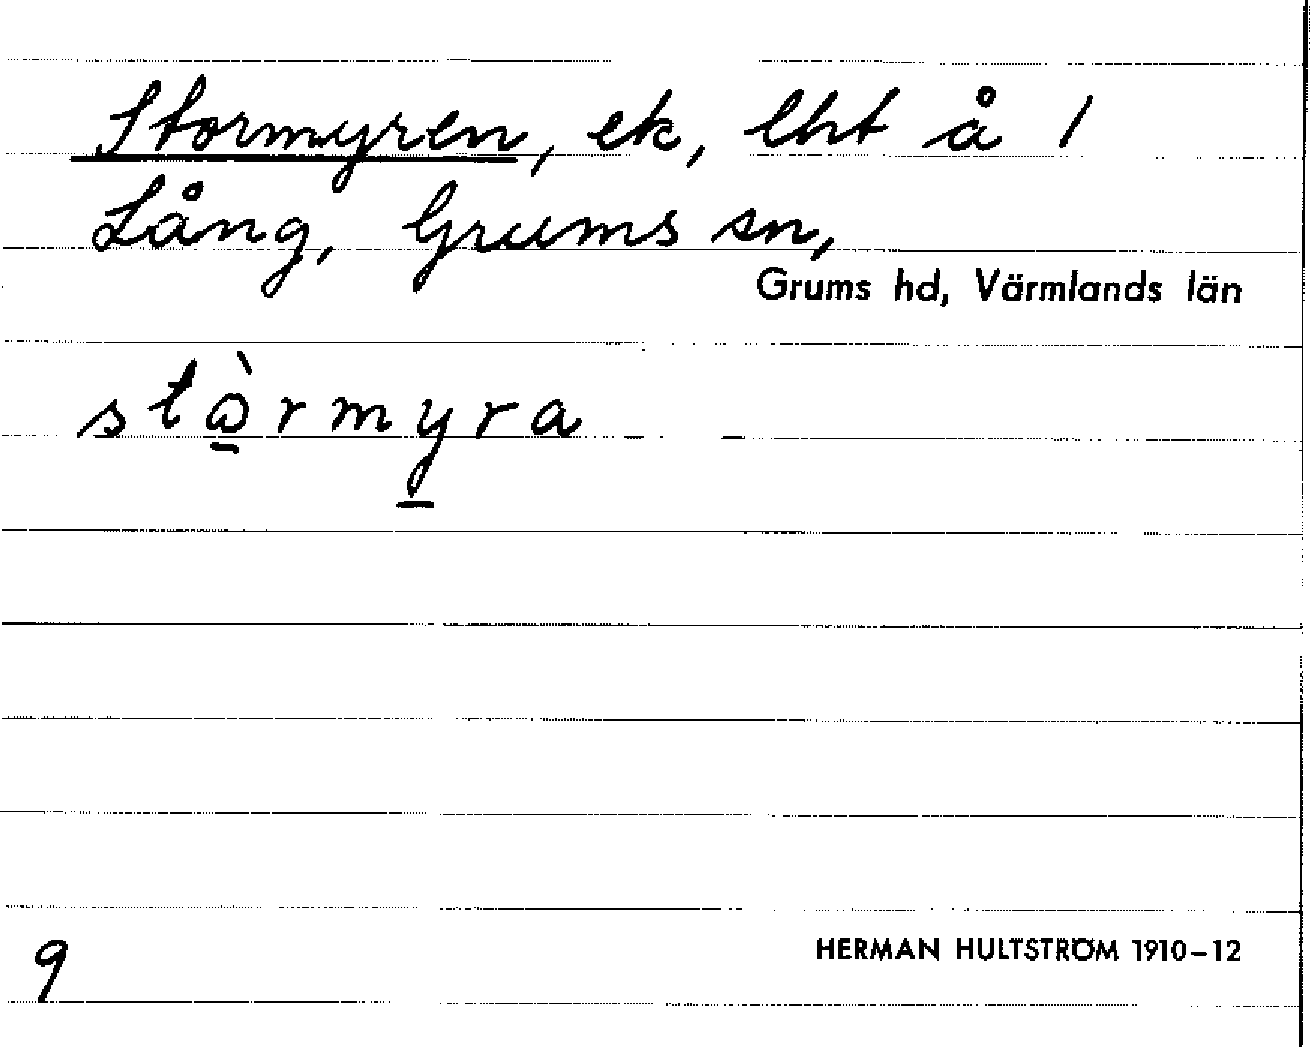 Stormyren, ek, lht å 1
Lång, Grums sn,
Grums hd, Värmlands län
stòrmyra
9
HERMAN HULTSTRÖM 1910–12